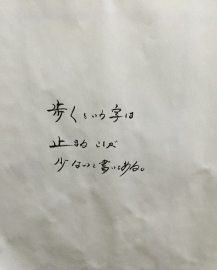 歩くという字は
止まることが
少ないと書いてある。